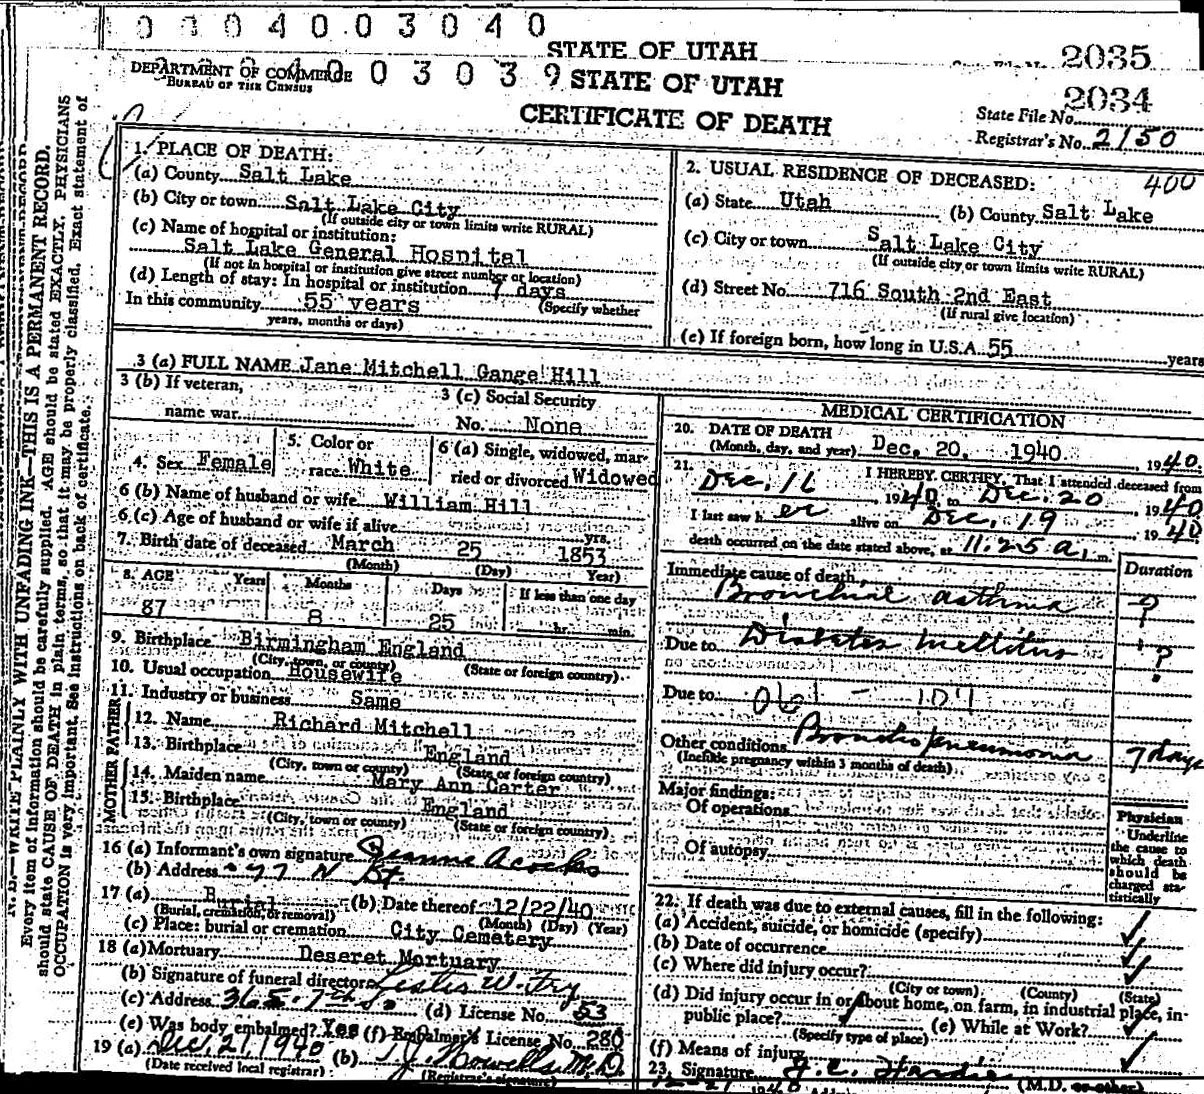 0 0 0 4 0 0 3 0 4 0
STATE OF UTAH
2035
DEPARTMENT OF COMMERCE
BUREAU OF THE CENSUS
4 0 0 3 0 3 9
STATE OF UTAH
2034
State File No.
CERTIFICATE OF DEATH
Registrar's No. 2150
N. B.—WRITE PLAINLY WITH UNFADING INK—THIS IS A PERMANENT RECORD.
Every item of information should be carefully supplied. AGE should be stated EXACTLY. PHYSICIANS
should state CAUSE OF DEATH in plain terms, so that it may be properly classified. Exact statement of
OCCUPATION is very important. See instructions on back of certificate.
1. PLACE OF DEATH:
(a) County Salt Lake
(b) City or town Salt Lake City
(If outside city or town limits write RURAL)
(c) Name of hospital or institution:
Salt Lake General Hospital
(If not in hospital or institution give street number or location)
(d) Length of stay: In hospital or institution 7 days
In this community 55 years (Specify whether
years, months or days)
2. USUAL RESIDENCE OF DECEASED: 400
(a) State Utah (b) County Salt Lake
(c) City or town Salt Lake City
(If outside city or town limits write RURAL)
(d) Street No. 716 South 2nd East
(If rural give location)
(e) If foreign born, how long in U.S.A. 55 years
3 (a) FULL NAME Jane Mitchell Gange Hill
3 (b) If veteran,
name war
3 (c) Social Security
No. None
4. Sex Female
5. Color or
race White
6 (a) Single, widowed, mar-
ried or divorced Widowed
6 (b) Name of husband or wife William Hill
6 (c) Age of husband or wife if alive yrs.
7. Birth date of deceased March 25 1853
(Month) (Day) (Year)
8. AGE Years Months Days If less than one day
87 8 25 hr. min.
9. Birthplace Birmingham England
(City, town, or county) (State or foreign country)
10. Usual occupation Housewife
11. Industry or business Same
FATHER
12. Name Richard Mitchell
13. Birthplace England
(City, town or county) (State or foreign country)
MOTHER
14. Maiden name Mary Ann Carter
15. Birthplace England
(City, town or county) (State or foreign country)
16 (a) Informant's own signature
(b) Address 77 N St.
17 (a) Burial (b) Date thereof 12/22/40
(Burial, cremation, or removal) (Month) (Day) (Year)
(c) Place: burial or cremation City Cemetery
18 (a) Mortuary Deseret Mortuary
(b) Signature of funeral director Leslie W. Fry
(c) Address 36 E. 7th So. (d) License No. 53
(e) Was body embalmed? Yes (f) Embalmer's License No. 280
19 (a) Dec. 21, 1940 (b) T.J. Howells M.D.
(Date received local registrar) (Registrar's signature)
MEDICAL CERTIFICATION
20. DATE OF DEATH
(Month, day, and year) Dec. 20, 1940, 1940.
21. I HEREBY CERTIFY, That I attended deceased from
Dec. 16, 1940 to Dec. 20, 1940
I last saw her alive on Dec. 19, 1940
death occurred on the date stated above, at 11:25 a. m.
Duration
Immediate cause of death,
Bronchial asthma ?
Due to Diabetes mellitus ?
Due to 061 - 107
Other conditions Broncho pneumonia 7 days
(Include pregnancy within 3 months of death)
Major findings:
Of operations
Of autopsy
Physician
Underline
the cause to
which death
should be
charged sta-
tistically
22. If death was due to external causes, fill in the following:
(a) Accident, suicide, or homicide (specify) ✓
(b) Date of occurrence ✓
(c) Where did injury occur? ✓
(City or town) (County) (State)
(d) Did injury occur in or about home, on farm, in industrial place, in-
public place? (e) While at Work? ✓
(Specify type of place)
(f) Means of injury ✓
23. Signature (M.D. or other)
12-21 1940